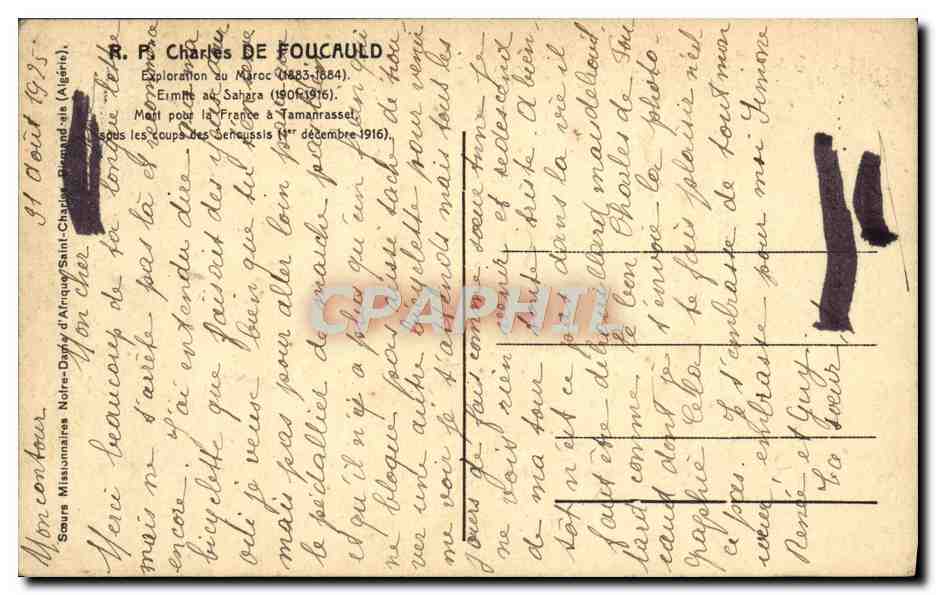 R. P. Charles DE FOUCAULD
Exploration au Maroc (1883-1884).
Ermite au Sahara (1901-1916).
Mort pour la France à Tamanrasset,
sous les coups des Senoussis (1er décembre 1916).
Sœurs Missionnaires Notre-Dame d'Afrique, Saint-Charles, Birmandreïs (Algérie).
Moncontour 31 août 1925
Mon cher
Merci beaucoup de ta longue lettre
mais ne t'arrête pas là et recommence
encore. J'ai entendu dire à maman
bicyclette que faisait des
oui je veux bien que tu
mais pas pour aller loin pour
le pédallier demanche pendant
et qu'il n'y a plus qu'un frein qui
ne bloque pas tache de trou
ver une autre bicyclette pour venir
me voir je t'attends mais tous les
jours je fais comme sœur Anne je
ne vois rien venir et redescend
de ma tour toute triste. A bien-
tôt n'est ce pas dans la vie il
faut être débrouillard mais debout
tard comme le bon Charles de Fou
cauld dont je t'envoie la photo
graphie cela te fais plaisir n'est
ce pas. Je t'embrasse de tout mon
cœur embrasse pour moi Simone
Renée et Guy.
Ta sœur,
CPARAPHIL